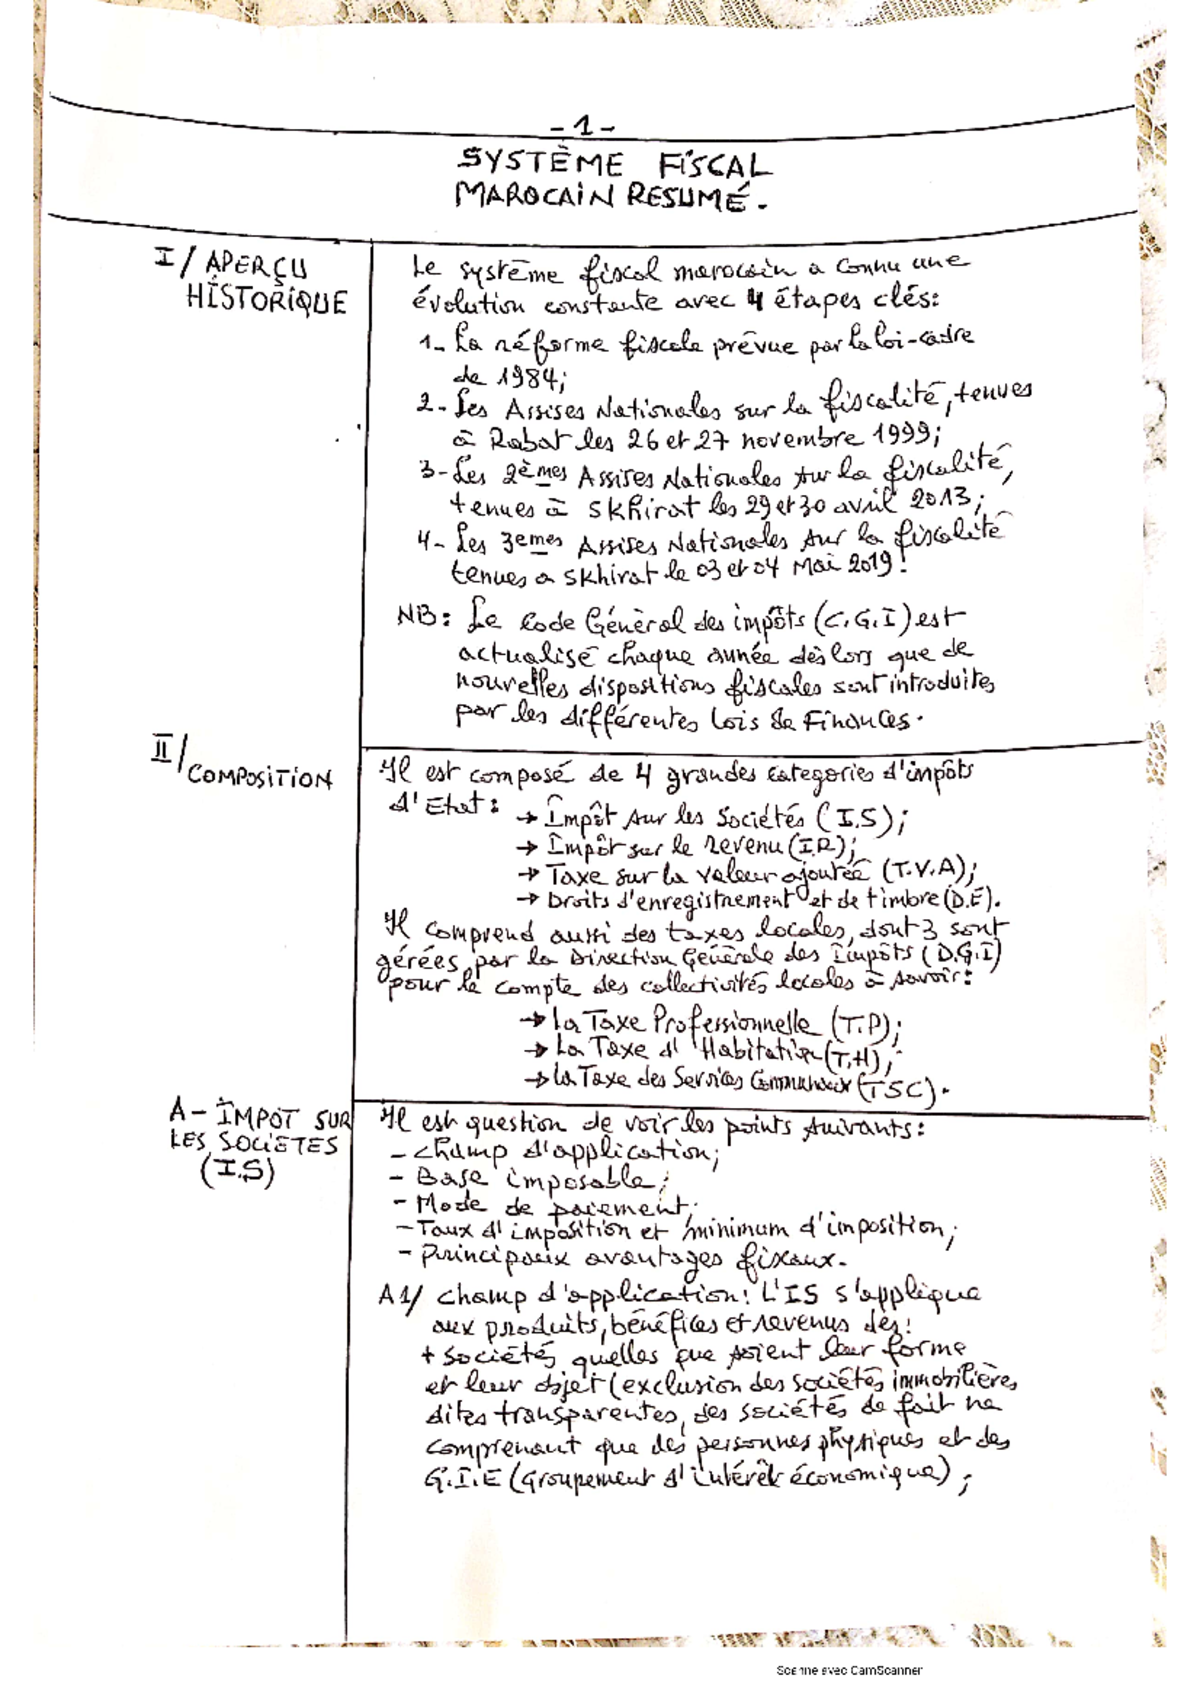 - 1 -
SYSTÈME FISCAL
MAROCAIN RESUMÉ.
I/ APERÇU
HISTORIQUE
Le système fiscal marocain a connu une
évolution constante avec 4 étapes clés:
1- La réforme fiscale prévue par la loi-cadre
de 1984;
2- Les Assises Nationales sur la fiscalité, tenues
à Rabat les 26 et 27 novembre 1999;
3- Les 2èmes Assises Nationales sur la fiscalité,
tenues à Skhirat les 29 et 30 avril 2013;
4- Les 3emes Assises Nationales sur la fiscalité
tenues a Skhirat le 03 et 04 Mai 2019!
NB: Le Code Général des impôts (C.G.I) est
actualisé chaque année dès lors que de
nouvelles dispositions fiscales sont introduites
par les différentes Lois de Finances.
II/ COMPOSITION
Il est composé de 4 grandes categories d'impôts
d'Etat:
→ Impôt sur les Sociétés (I.S);
→ Impôt sur le revenu (I.R);
→ Taxe sur la valeur ajoutée (T.V.A);
→ Droits d'enregistrement et de timbre (D.E).
Il comprend aussi des taxes locales, dont 3 sont
gérées par la Direction Générale des Impôts (D.G.I)
pour le compte des collectivités locales à savoir:
→ La Taxe Professionnelle (T.P);
→ La Taxe d'Habitation (T.H);
→ La Taxe des Services Communaux (TSC).
A- IMPOT SUR
LES SOCIETES
(I.S)
Il est question de voir les points suivants:
- Champ d'application;
- Base imposable;
- Mode de paiement;
- Taux d'imposition et minimum d'imposition;
- Principaux avantages fixaux.
A1/ Champ d'application: L'IS s'applique
aux produits, bénéfices et revenus des:
+ Sociétés quelles que soient leur forme
et leur objet (exclusion des sociétés immobilières
dites transparentes, des sociétés de fait ne
comprenant que des personnes physiques et des
G.I.E (Groupement d'intérêt économique);
Scanné avec CamScanner